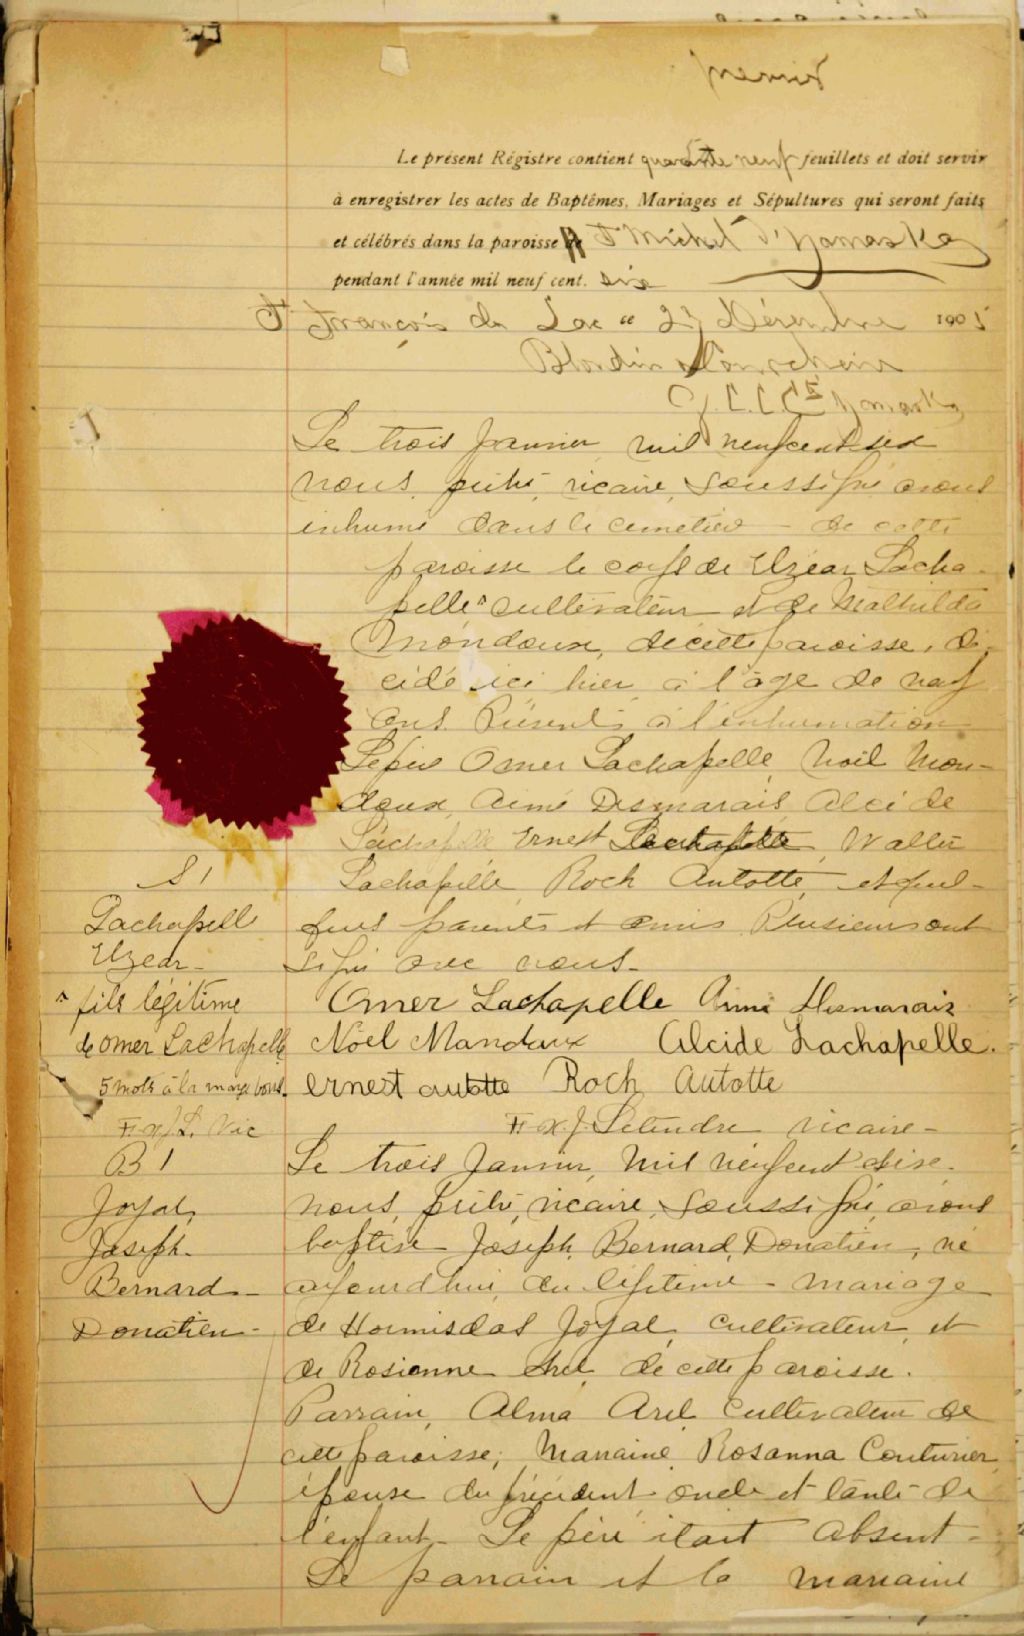 Le présent Régistre contient quarante neuf feuillets et doit servir
à enregistrer les actes de Baptêmes, Mariages et Sépultures qui seront faits
et célébrés dans la paroisse de St Michel d'Yamaska
pendant l'année mil neuf cent. six
St François du Lac ce 27 Décembre 1905
Blondin
Yamaska
Le trois Janvier mil neufcent six
nous, prêtre, vicaire, soussigné avons
inhumé dans le cimetière de cette
paroisse le corps de Elzéar Lacha-
pelle ^ cultivateur et de Mathilda
Mondoux, de cette paroisse, dé-
cédé ici hier à l'âge de neuf
ans. Présents à l'inhumation
Le père Omer Lachapelle Noël Mon-
doux, Aimé Desmarais, Alcide
Lachapelle Ernest Lachapelle, Walter
Lachapelle, Roch Autotte, et quel-
ques parents et amis. Plusieurs ont
signé avec nous.
S 1
Lachapelle
Elzéar
^ fils légitime
de Omer Lachapelle
5 mots à la marge bons.
F. X. J. L. Vic
Omer Lachapelle Aimé Desmarais
Noël Mandoux Alcide Lachapelle.
Ernest autotte Roch Autotte
F. X. J. Letendre vicaire
B 1
Joyal,
Joseph
Bernard
Donatien
Le trois Janvier, mil neufcent six
nous, prêtre, vicaire, soussigné, avons
baptisé Joseph, Bernard, Donatien, né
aujourd'hui, du légitime mariage
de Hormisdas Joyal, cultivateur, et
de Rosianne de cette paroisse.
Parrain, Alma Arel cultivateur de
cette paroisse; Marraine Rosanna Couturier,
épouse du précédent oncle et tante de
l'enfant. Le père était absent.
Le parrain et la marraine